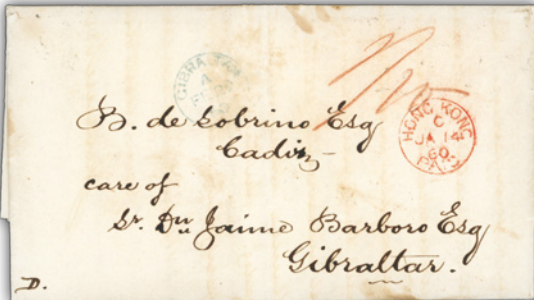 GIBRALTAR
A
HONG KONG
C
JA 14
60
PAID
B. de Sobrino Esq
Cadiz
care of
Sr. Dn Jaime Barboro Esq
Gibraltar.
D.